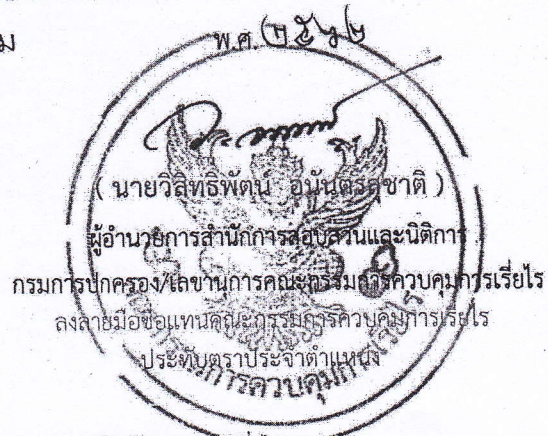 ม พ.ศ. ๒๕๖๒
( นายวิสิทธิพัฒน์ อนันตรสุชาติ )
ผู้อำนวยการสำนักการสอบสวนและนิติการ
กรมการปกครอง/เลขานุการคณะกรรมการควบคุมการเรี่ยไร
ลงลายมือชื่อแทนคณะกรรมการควบคุมการเรี่ยไร
ประทับตราประจำตำแหน่ง
กรรมการควบคุมการเรี่ยไร